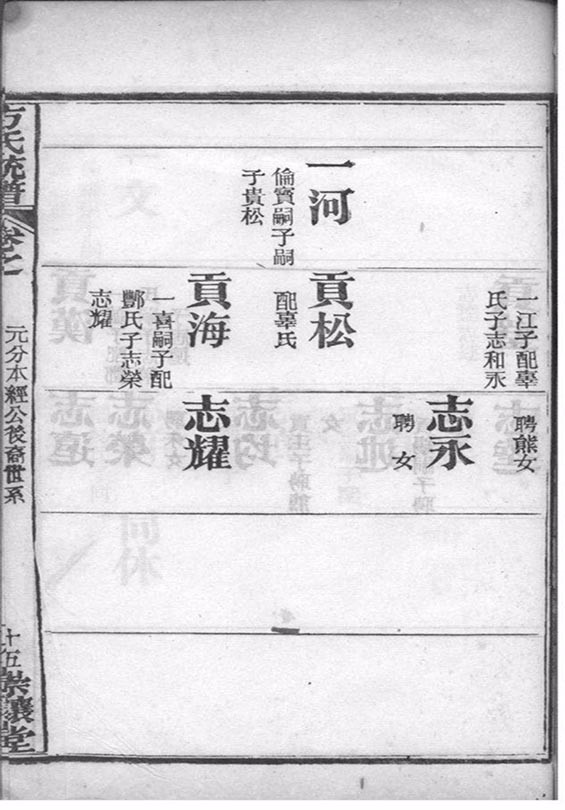 一河
倫寶嗣子嗣
子貴松
一江子配辜
氏子志和永
貢松
配辜氏
貢海
一喜嗣子配
酆氏子志榮
志耀
聘熊女
志永
聘 女
志耀
方氏統譜
元分本經公後裔世系
十五
崇讓堂